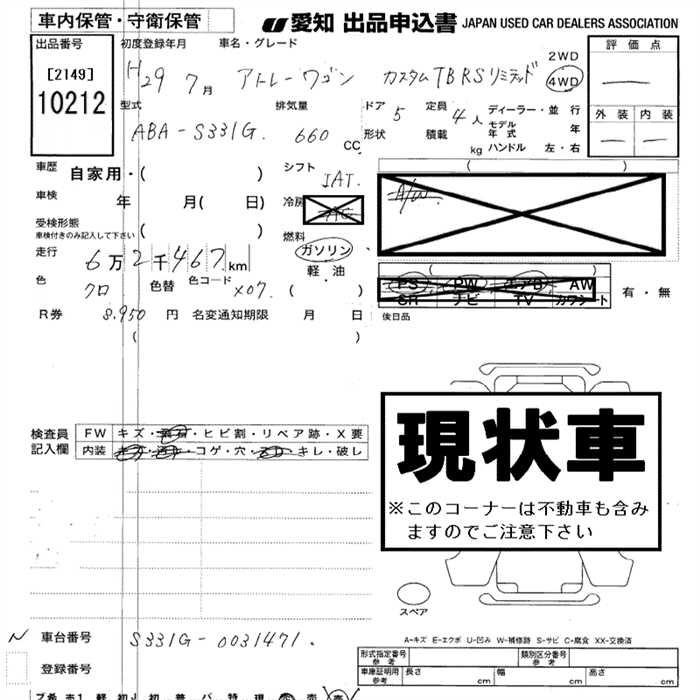 車内保管・守衛保管 愛知 出品申込書 JAPAN USED CAR DEALERS ASSOCIATION
出品番号 初度登録年月 車名・グレード 2WD 評価点
[2149] H29 7月 アトレーワゴン カスタムTBRSリミテッド 4WD
10212 型式 排気量 ドア 5 定員 4人 ディーラー・並行 外装 内装
ABA-S331G. 660 CC 形状 積載 kg モデル年式 年 ハンドル 左・右
車歴 自家用・( ) シフト IAT.
車検 年 月( 日) 冷房 AC A/W
受検形態 ( )
車検付きのみ記入して下さい 燃料
走行 6万2千467km ガソリン
色 クロ 色替 色コード X07. ( ) 軽油 ( )
PS PW エアB AW 有・無
SR ナビ TV カワシート
R券 8,950 円 名変通知期限 月 日 後日品
( )
検査員 FW キズ・飛石・ヒビ割・リペア跡・X要
記入欄 内装 コゲ・穴・キレ・破レ
現状車
※このコーナーは不動車も含み
ますのでご注意下さい
スペア
A-キズ E-エクボ U-凹み W-補修跡 S-サビ C-腐食 XX-交換済
N 車台番号 S331G-0031471.
形式指定番号 参考 類別区分番号 参考
登録番号 車庫証明用 参考 長さ cm 幅 cm 高さ cm